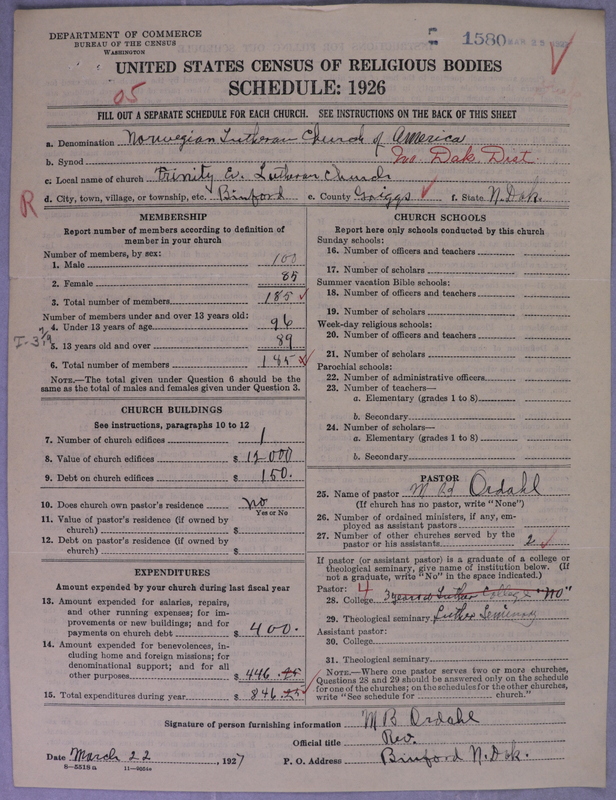 DEPARTMENT OF COMMERCE
BUREAU OF THE CENSUS
WASHINGTON
1580
UNITED STATES CENSUS OF RELIGIOUS BODIES
05
SCHEDULE: 1926
FILL OUT A SEPARATE SCHEDULE FOR EACH CHURCH. SEE INSTRUCTIONS ON THE BACK OF THIS SHEET
a. Denomination Norwegian Lutheran Church of America
b. Synod No. Dak. Dist.
c. Local name of church Trinity Ev. Lutheran Church
R
d. City, town, village, or township, etc. Binford e. County Griggs f. State N. Dak.
MEMBERSHIP
Report number of members according to definition of
member in your church
Number of members, by sex:
1. Male 100
2. Female 85
3. Total number of members 185
Number of members under and over 13 years old:
4. Under 13 years of age 96
5. 13 years old and over 89
6. Total number of members 185
NOTE.—The total given under Question 6 should be the
same as the total of males and females given under Question 3.
CHURCH BUILDINGS
See instructions, paragraphs 10 to 12
7. Number of church edifices 1
8. Value of church edifices $ 12000
9. Debt on church edifices $ 150.
10. Does church own pastor's residence No
Yes or No
11. Value of pastor's residence (if owned by
church) $
12. Debt on pastor's residence (if owned by
church) $
EXPENDITURES
Amount expended by church during last fiscal year
13. Amount expended for salaries, repairs,
and other running expenses; for im-
provements or new buildings; and for
payments on church debt $ 400.
14. Amount expended for benevolences, in-
cluding home and foreign missions; for
denominational support; and for all
other purposes $ 446.25
15. Total expenditures during year $ 846.25
CHURCH SCHOOLS
Report here only schools conducted by this church
Sunday schools:
16. Number of officers and teachers
17. Number of scholars
Summer vacation Bible schools:
18. Number of officers and teachers
19. Number of scholars
Week-day religious schools:
20. Number of officers and teachers
21. Number of scholars
Parochial schools:
22. Number of administrative officers
23. Number of teachers—
a. Elementary (grades 1 to 8)
b. Secondary
24. Number of scholars—
a. Elementary (grades 1 to 8)
b. Secondary
PASTOR
25. Name of pastor M B Ordahl
(If church has no pastor, write "None")
26. Number of ordained ministers, if any, em-
ployed as assistant pastors
27. Number of other churches served by the
pastor or his assistants 2
If pastor (or assistant pastor) is a graduate of a college or
theological seminary, give name of institution below. (If
not a graduate, write "No" in the space indicated.)
Pastor: 4
28. College 3 years at Luther College "No"
29. Theological seminary Luther Seminary
Assistant pastor:
30. College
31. Theological seminary
NOTE.—Where one pastor serves two or more churches,
Questions 28 and 29 should be answered only on the schedule
for one of the churches; on the schedules for the other churches,
write "See schedule for church."
Signature of person furnishing information M B Ordahl
Official title Rev.
Date March 22, 1927 P. O. Address Binford N. Dak.
8—5518a 11—9054a